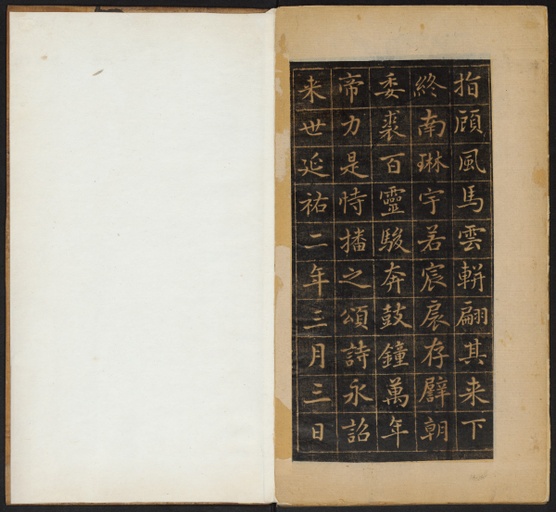 指顧風馬雲軿翩其来下
終南琳宇若宸扆存闢朝
委裘百靈駿奔鼓鐘萬年
帝力是恃播之頌詩永詔
来世延祐二年三月三日